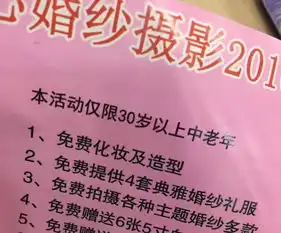 心婚纱摄影201
本活动仅限30岁以上中老年
1、免费化妆及造型
2、免费提供4套典雅婚纱礼服
3、免费拍摄各种主题婚纱多款
4、免费赠送6张5寸
5、免费赠